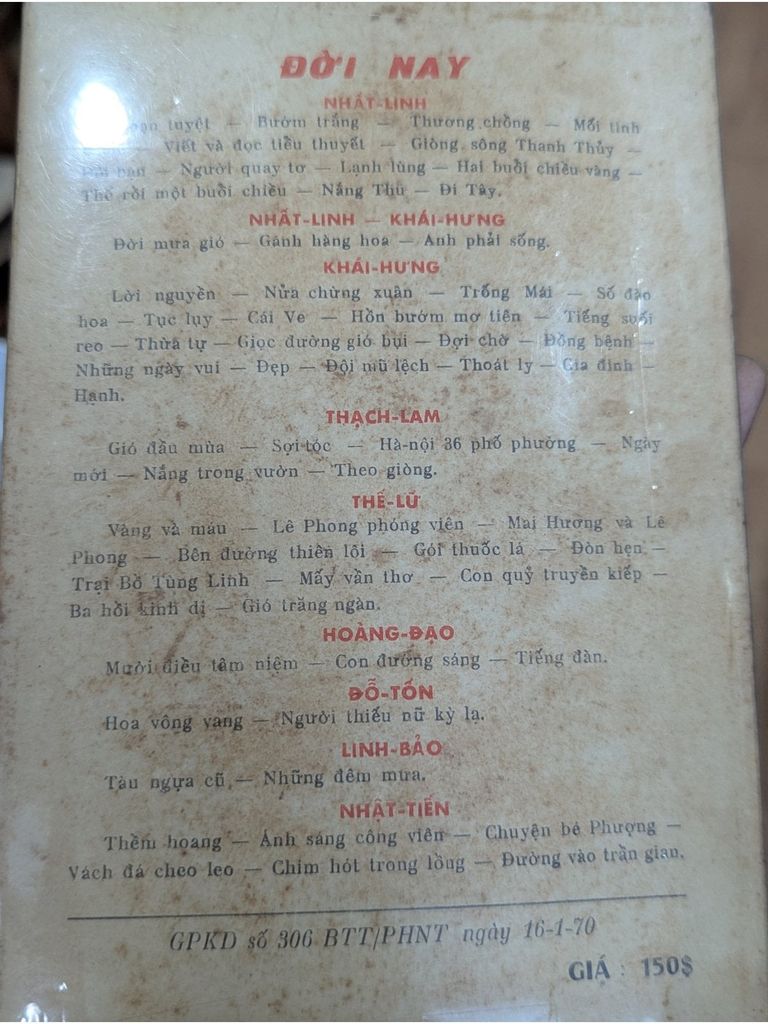 ĐỜI NAY
NHẤT-LINH
tuyệt — Bướm trắng — Thương chồng — Mối tình
Viết và đọc tiểu thuyết — Giòng sông Thanh Thủy —
bạn — Người quay tơ — Lạnh lùng — Hai buổi chiều vàng —
Thế rồi một buổi chiều — Nắng Thu — Đi Tây.
NHẤT-LINH — KHÁI-HƯNG
Đời mưa gió — Gánh hàng hoa — Anh phải sống.
KHÁI-HƯNG
Lời nguyền — Nửa chừng xuân — Trống Mái — Số đào
hoa — Tục lụy — Cái Ve — Hồn bướm mơ tiên — Tiếng suối
reo — Thừa tự — Giọc đường gió bụi — Đợi chờ — Đồng bệnh —
Những ngày vui — Đẹp — Đội mũ lệch — Thoát ly — Gia đình —
Hạnh.
THẠCH-LAM
Gió đầu mùa — Sợi tóc — Hà-nội 36 phố phường — Ngày
mới — Nắng trong vườn — Theo giòng.
THẾ-LỮ
Vàng và máu — Lê Phong phóng viên — Mai Hương và Lê
Phong — Bên đường thiên lôi — Gói thuốc lá — Đòn hẹn —
Trại Bồ Tùng Linh — Mấy vần thơ — Con quỷ truyền kiếp —
Ba hồi kinh dị — Gió trăng ngàn.
HOÀNG-ĐẠO
Mười điều tâm niệm — Con đường sáng — Tiếng đàn.
ĐỖ-TỐN
Hoa vông vang — Người thiếu nữ kỳ lạ.
LINH-BẢO
Tàu ngựa cũ — Những đêm mưa.
NHẬT-TIẾN
Thềm hoang — Ánh sáng công viên — Chuyện bé Phượng —
Vách đá cheo leo — Chim hót trong lồng — Đường vào trần gian.
GPKD số 306 BTT/PHNT ngày 16-1-70
GIÁ : 150$